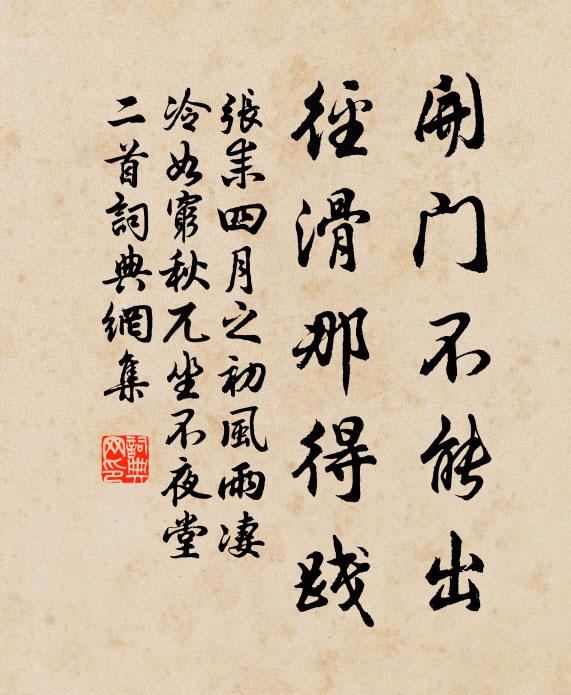 開門不能出
徑滑那得踐
張耒四月之初風雨淒
冷如窮秋兀坐不夜堂
二首詞典網集
詞典
网印